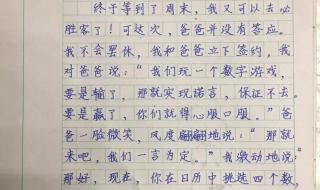 终于等到了周末，我又可以去必
胜客了！可这次，爸爸并没有答应。
我不会罢休，我和爸爸立下签约，我
对爸爸说：“我们玩一个数字游戏，
要是输了，那就实现诺言，保证不去。
要是赢了，你们就得心服口服。”爸
爸一脸微笑，风度翩翩地说：“那就
来吧，我们一言为定。”我激动地说：
那好，现在，你在日历中挑选四个数，